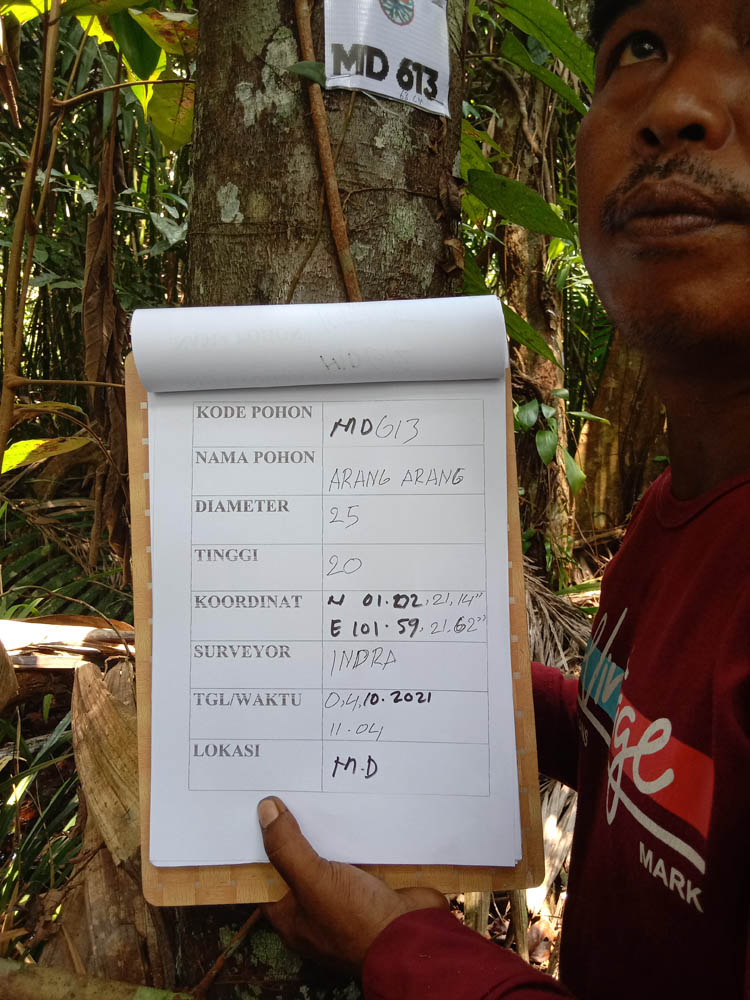 MD 613
KODE POHON MD613
NAMA POHON ARANG ARANG
DIAMETER 25
TINGGI 20
KOORDINAT N 01.02,21,14"
E 101.59,21.62"
SURVEYOR INDRA
TGL/WAKTU 04,10.2021
11.04
LOKASI M.D
MARK